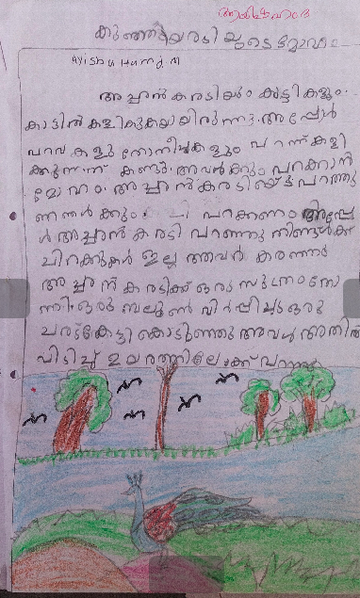 ആയിഷഹന്ന
കുഞ്ഞിക്കരടിയുടെ മോഹം
Ayisha Hanna M
അച്ഛൻ കരടിയും കുട്ടികളും
കാട്ടിൽ കളിക്കുകയായിരുന്നു. അപ്പോൾ
പറവകളു തേനീച്ചകളും പറന്ന് കളി
ക്കുന്നന്ന് കണ്ടു. അവർക്കും പറക്കാൻ
മോഹം. അച്ഛൻ കരടിയോട് പറഞ്ഞു
ഞങ്ങൾക്കും പറക്കണം അപ്പോ
ൾ അച്ഛൻ കരടി പറഞ്ഞു നിങ്ങൾക്ക്
ചിറകുകൾ ഇല്ല അവർ കരഞ്ഞു
അച്ഛൻ കരടിക്ക് ഒരു സൂത്രം തോ
ന്നി. ഒരു ബലൂൺ വീർപ്പിച്ചു ഒരു
ചരട് കെട്ടി കൊടുത്തു അവർ അതിൽ
പിടിച്ച് ഉയരത്തിലേക്ക് പറന്നു